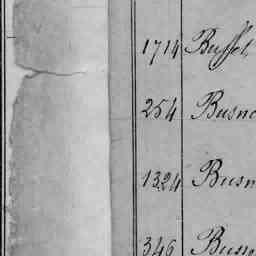 1714 Buffet
254 Busno
1324 Busn
346 Busso